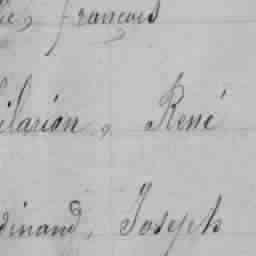 françois
ilarion, René
dinand, Joseph